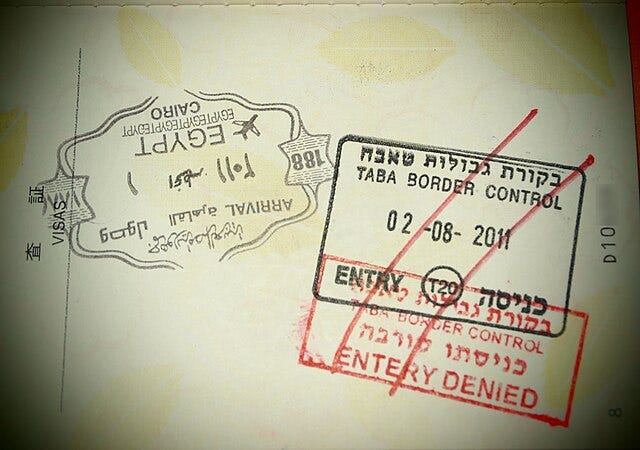 査 証
VISAS
CAIRO
EGYPTEGYPTEGYPTEGYPT
EGYPT
188
٢٠١١
١
ARRIVAL القاهرة وصول
בקורת גבולות טאבה
TABA BORDER CONTROL
02 -08- 2011
ENTRY T20 כניסה
בקורת גבולות טאבה
TABA BORDER CONTROL
כניסתו סורבה
ENTERY DENIED
D10
8